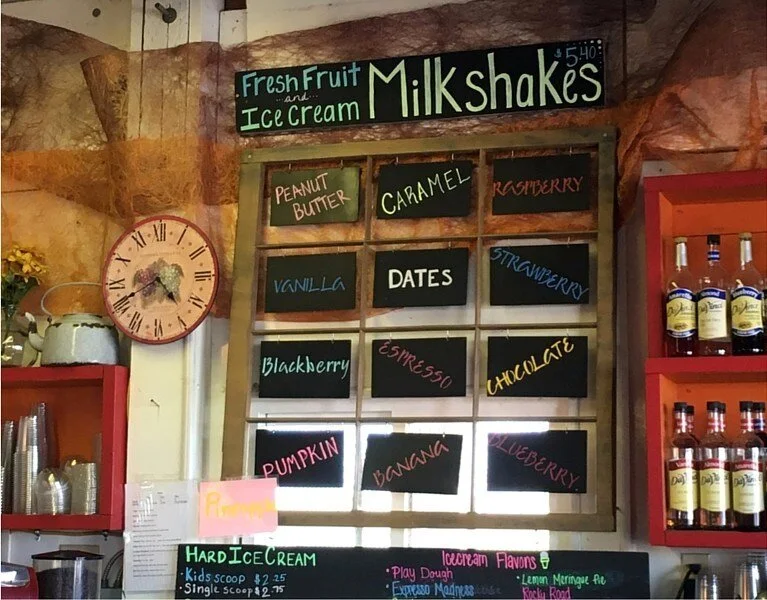 Fresh Fruit
and
Ice Cream
Milkshakes
$5.40
PEANUT
BUTTER
CARAMEL
RASPBERRY
VANILLA
DATES
STRAWBERRY
Blackberry
ESPRESSO
CHOCOLATE
PUMPKIN
BANANA
BLUEBERRY
XII
I
II
III
IIII
V
VI
VII
VIII
IX
X
XI
HARD ICE CREAM
· Kids scoop $2.25
· Single scoop $2.75
Icecream Flavors
· Play Dough
· Expresso Madness
· Lemon Meringue Pie
Rocky Road